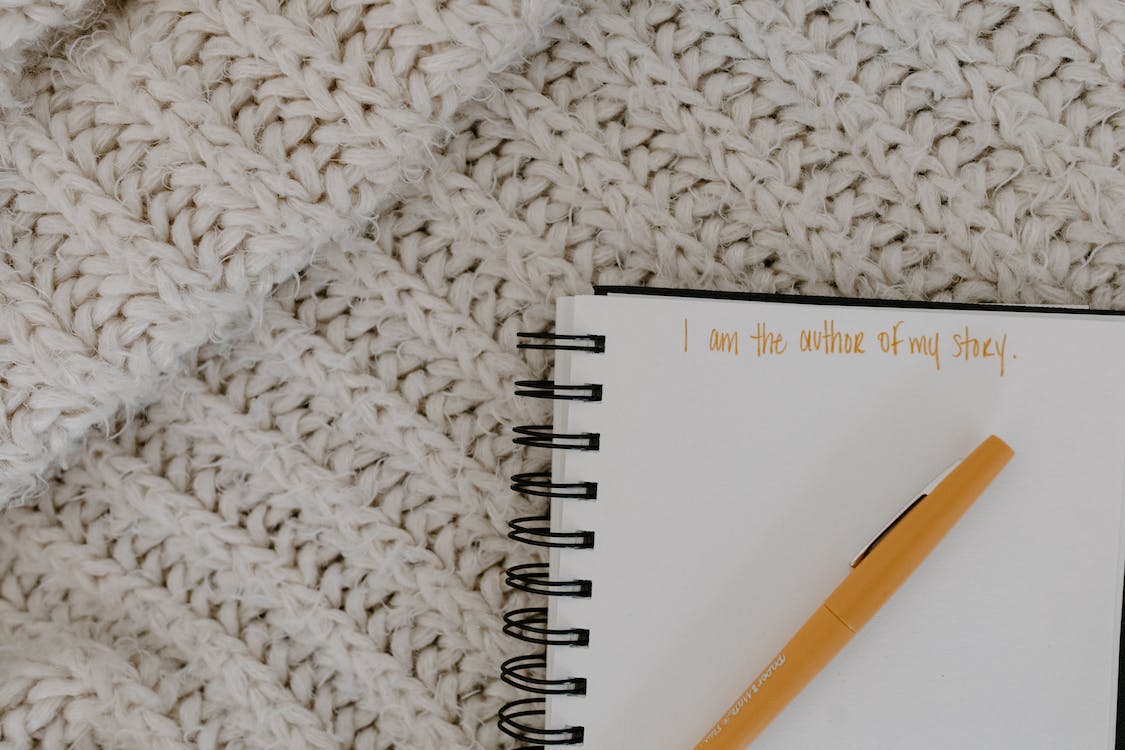 I am the author of my story.
Paper Mate